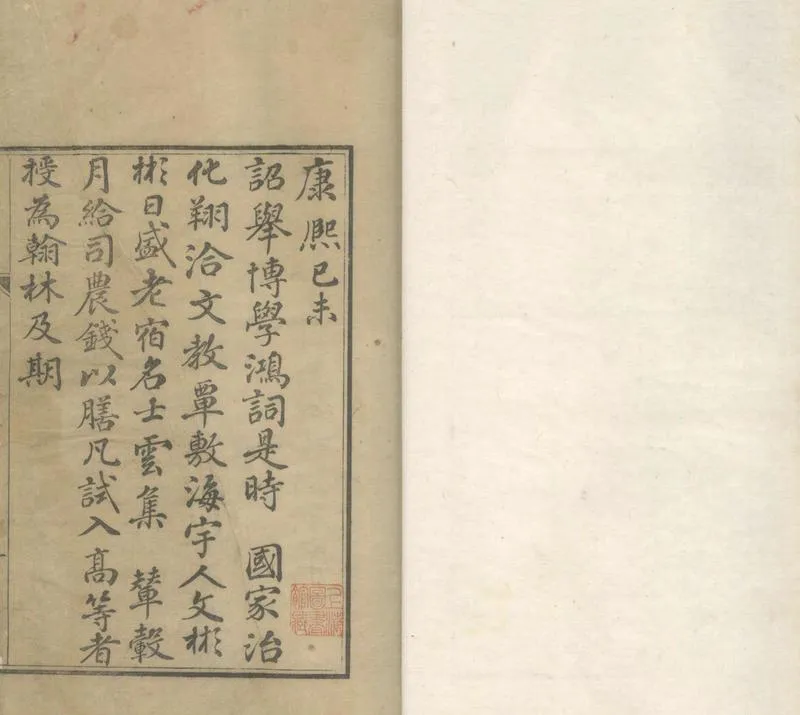 康熙己未
詔舉博學鴻詞是時　國家治
化翔洽文教覃敷海宇人文彬
彬日盛老宿名士雲集　輦轂
月給司農錢以膳凡試入高等者
授為翰林及期
上海圖書館藏